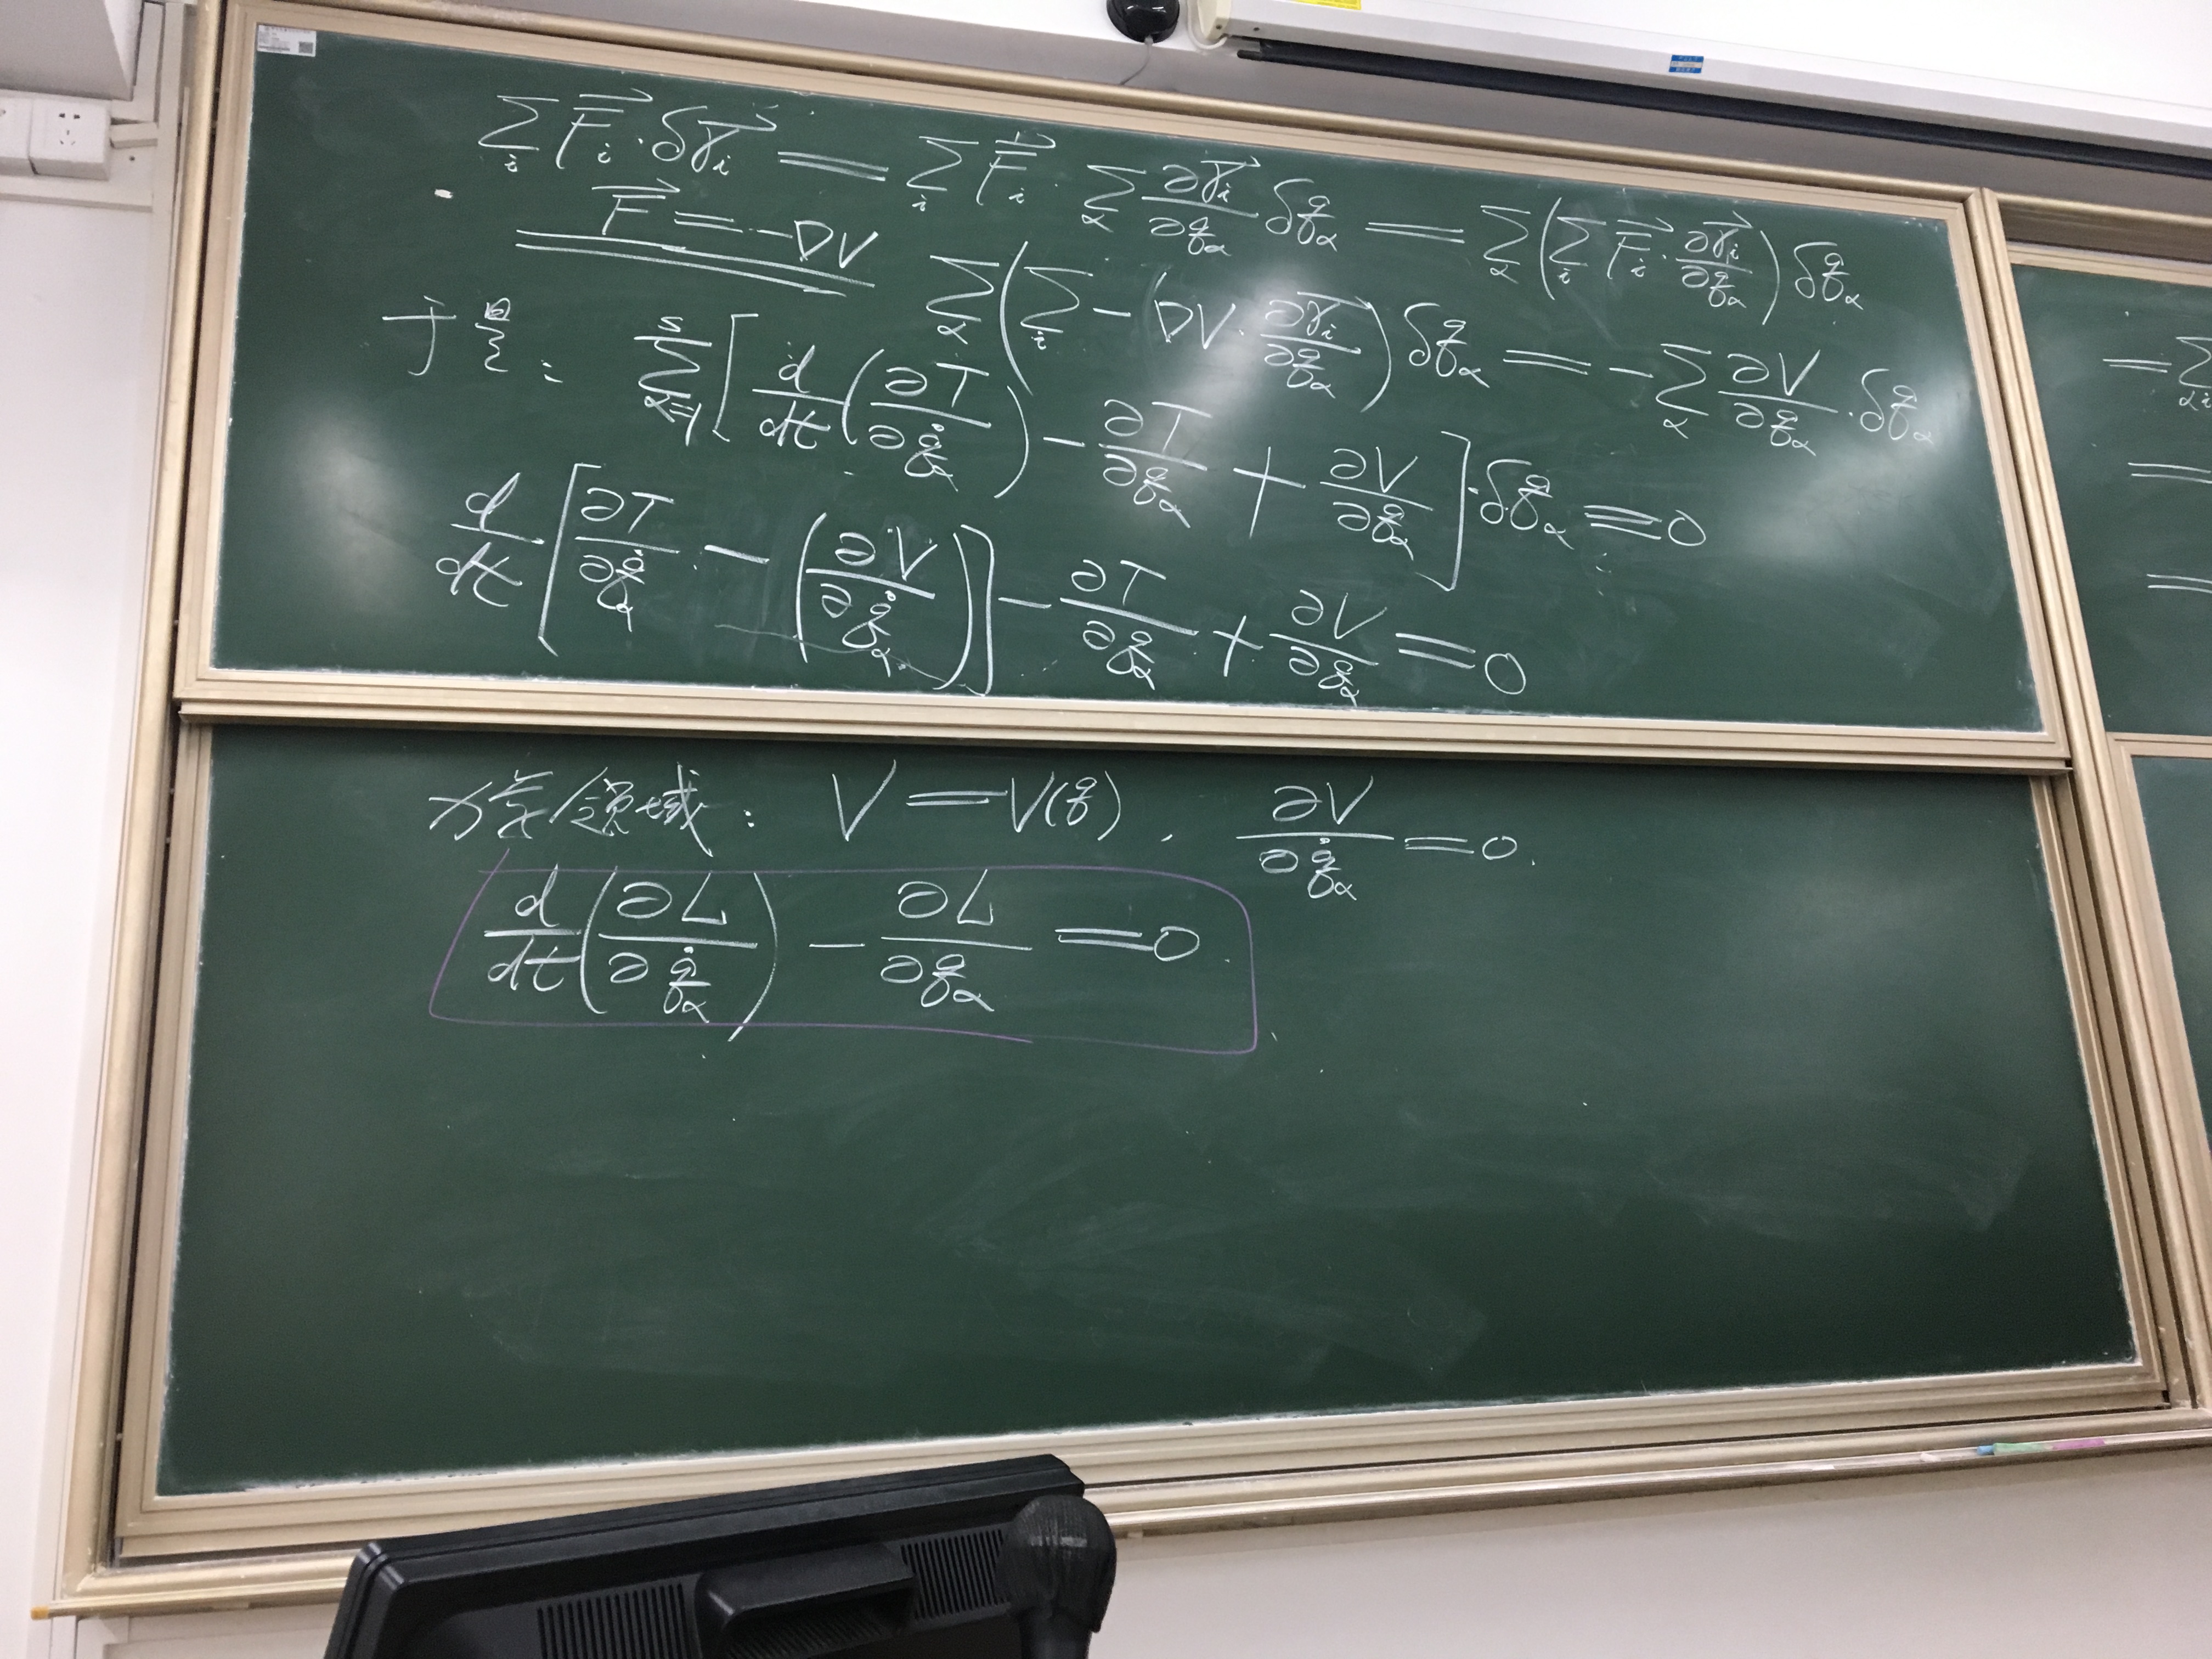 ∑_i F⃗_i · δr⃗_i = ∑_i F⃗_i · ∑_α ∂r⃗_i/∂q_α δq_α = ∑_α (∑_i F⃗_i · ∂r⃗_i/∂q_α) δq_α
F⃗ = -∇V ∑_α (∑_i -∇V · ∂r⃗_i/∂q_α) δq_α = -∑_α ∂V/∂q_α · δq_α
于是: ∑_{α=1}^{s} [d/dt (∂T/∂q̇_α) - ∂T/∂q_α + ∂V/∂q_α] · δq_α = 0
d/dt [∂T/∂q̇_α - (∂V/∂q̇_α)] - ∂T/∂q_α + ∂V/∂q_α = 0
领域: V = V(q), ∂V/∂q̇_α = 0.
d/dt (∂L/∂q̇_α) - ∂L/∂q_α = 0
= ∑
=
=